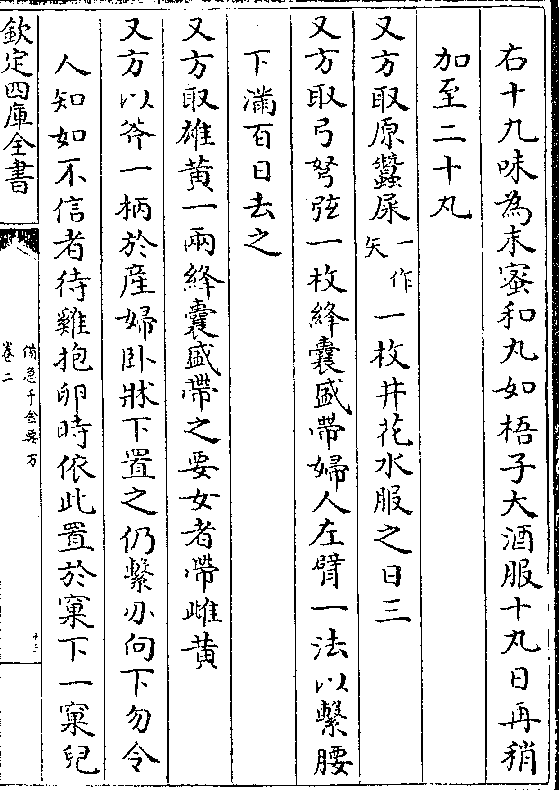 右十九味為末蜜和丸如梧子大酒服十丸日再稍
加至二十丸
又方取原蠶屎一作矢一枚井花水服之日三
又方取弓弩弦一枚絳囊盛帶婦人左臂一法以繫腰
下滿百日去之
又方取雄黃一兩絳囊盛帶之要女者帶雌黃
又方以斧一柄於產婦卧牀下置之仍繫刃向下勿令
人知如不信者待雞抱卵時依此置於窠下一窠兒
欽定四庫全書
備急千金要方
卷二